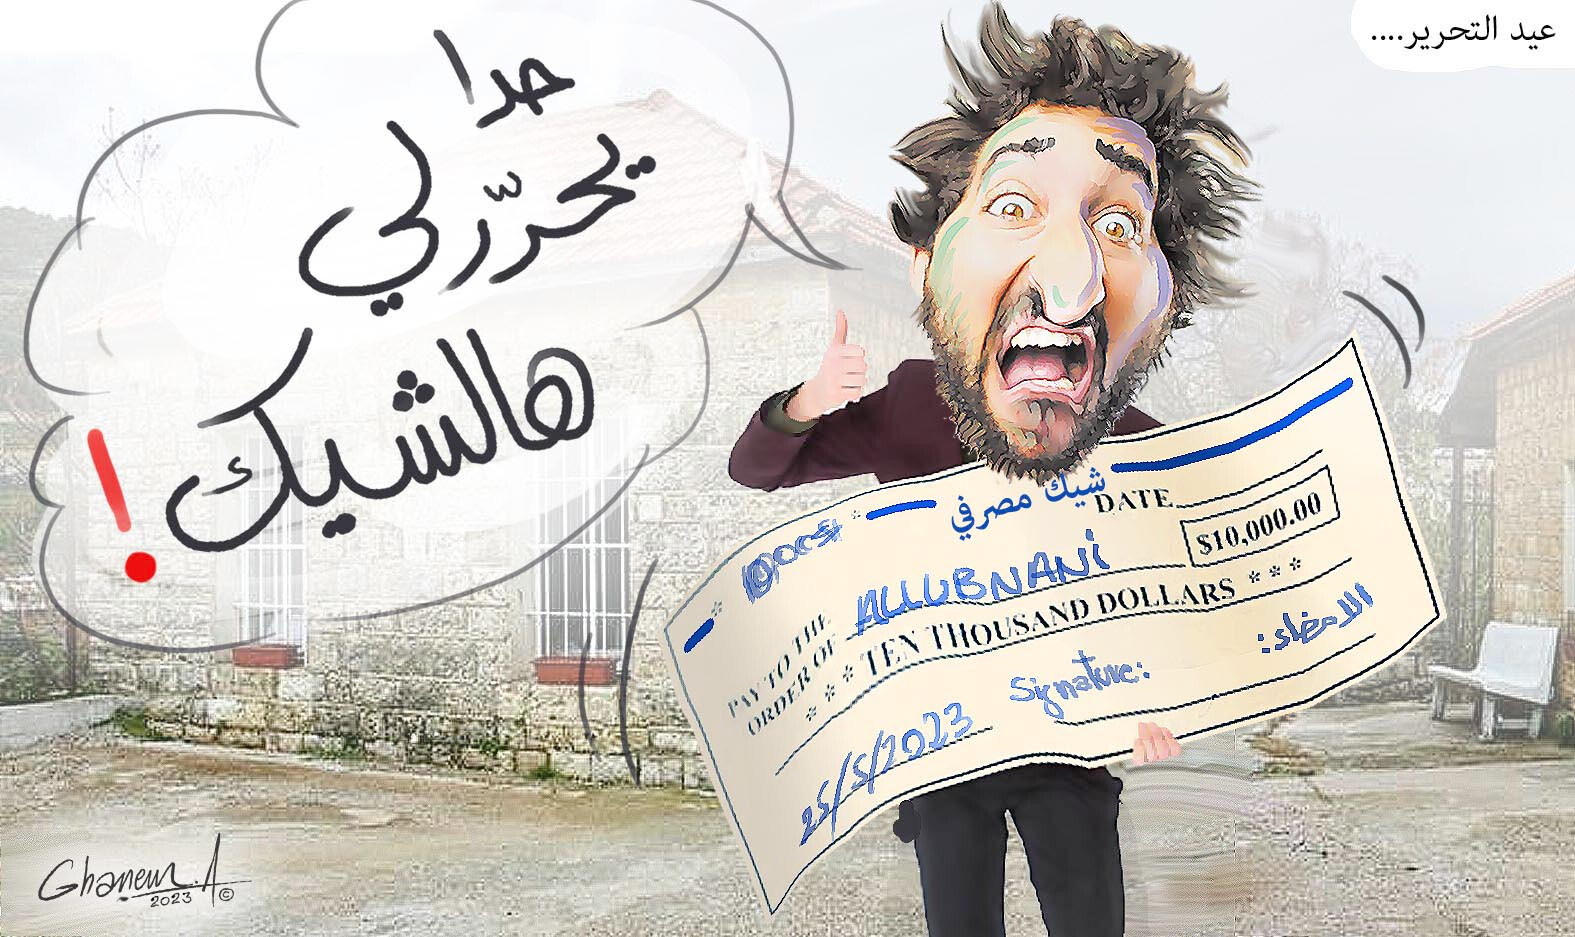 عيد التحرير....
حدا
يحرّرلي
هالشيك!
شيك مصرفي
DATE
$10,000.00
PAY TO THE
ORDER OF
ALLUBNANI
* * * TEN THOUSAND DOLLARS * * *
Signature:
الامضاء:
25/5/2023
Ghanem.A
2023 ©